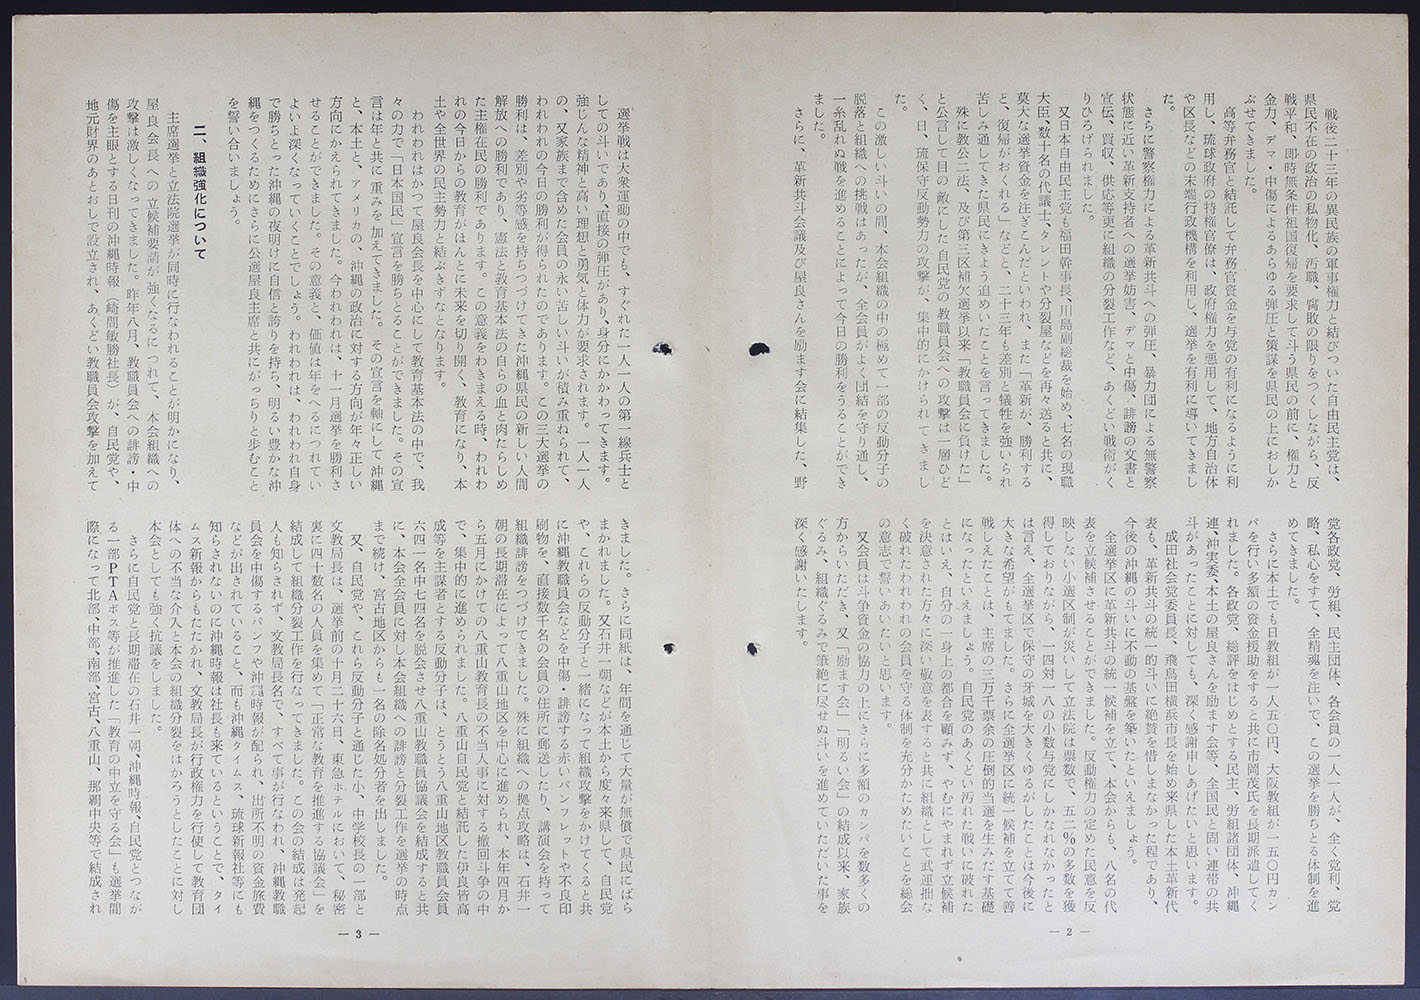 戦後二十三年の異民族の軍事権力と結びついた自由民主党は、
県民不在の政治の私物化、汚職、腐敗の限りをつくしながら、反
戦平和、即時無条件祖国復帰を要求して斗う県民の前に、権力と
金力、デマ・中傷によるあらゆる弾圧と策謀を県民の上におしか
ぶせてきました。
高等弁務官と結託して弁務官資金を与党の有利になるように利
用し、琉球政府の特権官僚は、政府権力を悪用して、地方自治体
や区長などの末端行政機構を利用し、選挙を有利に導いてきまし
た。
さらに警察権力による革新共斗への弾圧、暴力団による無警察
状態に近い革新支持者への選挙妨害、デマと中傷、誹謗の文書と
宣伝、買収、供応等更に組織の分裂工作など、あくどい戦術がく
りひろげられました。
又日本自由民主党も福田幹事長、川島副総裁を始め、七名の現職
大臣、数十名の代議士、タレントや分裂屋などを再々送ると共に、
莫大な選挙資金を注ぎこんだといわれ、また「革新が、勝利する
と、復帰がおくれる」などと、二十三年も差別と犠牲を強いられ。
苦しみ通してきた県民にきよう迫めいたことを言ってきました。
殊に教公二法、及び第三区補欠選挙以来「教職員会に負けた」
と公言して目の敵にした自民党の教職員会への攻撃は一層ひど
く、日、琉保守反動勢力の攻撃が、集中的にかけられてきまし
た。
この激しい斗いの間、本会組織の中の極めて一部の反動分子の
脱落と組織への挑戦はあったが、全会員がよく団結を守り通し、
一糸乱れぬ戦を進めることによって今日の勝利をうることができ
ました。
さらに、革新共斗会議及び屋良さんを励ます会に結集した、野
党各政党、労組、民主団体、各会員の一人一人が、全く党利、党
略、私心をすて、全精魂を注いで、この選挙を勝ちとる体制を進
めてきました。
さらに本土でも日教組が一人五〇円、大阪教組が一五〇円カン
パを行い多額の資金援助をすると共に市岡茂氏を長期派遣してく
れました。各政党、総評をはじめとする民主、労組諸団体、沖縄
連、沖実委、本土の屋良さんを励ます会等、全国民と固い連帯の共
斗があったことに対しても、深く感謝申しあげたいと思います。
成田社会党委員長、飛鳥田横浜市長を始め来県した本土革新代
表も、革新共斗の統一的斗いに絶賛を惜しまなかった程であり、
今後の沖縄の斗いに不動の基盤を築いたといえましょう。
全選挙区に革新共斗の統一候補を立て、本会からも、八名の代
表を立候補させることができました。反動権力の定めた民意を反
映しない小選区制が災いして立法院は票数で、五二%の多数を獲
得しておりながら、一四対一八の小数与党にしかなれなかったと
は言え、全選挙区で保守の牙城を大きくゆるがしたことは今後に
大きな希望がもてました。さらに全選挙区に統一候補を立てて善
戦しえたことは、主席の三万千票余の圧倒的当選を生みだす基礎
になったといえましょう。自民党のあくどい汚れた戦いに破れた
とはいえ、自分の一身上の都合を顧みず、やむにやまれず立候補
を決意された方々に深い敬意を表すると共に組織として武運拙な
く破れたわれわれの会員を守る体制を充分かためたいことを総会
の意志で誓いあいたいと思います。
又会員は斗争資金の協力の上にさらに多額のカンパを数多くの
方からいただき、又「励ます会」「明るい会」の結成以来、家族
ぐるみ、組織ぐるみで筆絶に尽せぬ斗いを進めていただいた事を
深く感謝いたします。
— 2 —
選挙戦は大衆運動の中でも、すぐれた一人一人の第一線兵士と
しての斗いであり、直接の弾圧があり、身分にかかわってきます。
強じんな精神と高い理想と勇気と体力が要求されます。一人一人
の、又家族まで含めた会員の永い苦しい斗いが積み重ねられて、
われわれの今日の勝利が得られたのであります。この三大選挙の
勝利は、差別や劣等感を持ちつづけてきた沖縄県民の新しい人間
解放への勝利であり、憲法と教育基本法の自らの血と肉たらしめ
た主権在民の勝利であります。この意義をわきまえる時、われわ
れの今日からの教育がほんとに未来を切り開く、教育になり、本
土や全世界の民主勢力と結ぶきずなとなります。
われわれはかつて屋良会長を中心にして教育基本法の中で、我
々の力で「日本国民」宣言を勝ちとることができました。その宣
言は年と共に重みを加えてきました。その宣言を軸にして沖縄
と、本土と、アメリカの、沖縄の政治に対する方向が年々正しい
方向にかえられてきました。今われわれは、十一月選挙を勝利さ
せることができました。その意義と、価値は年をへるにつれてい
よいよ深くなっていくことでしょう。われわれは、われわれ自身
で勝ちとった沖縄の夜明けに自信と誇りを持ち、明るい豊かな沖
縄をつくるためにさらに公選屋良主席と共にがっちりと歩むこと
を誓い合いましょう。
二、組織強化について
主席選挙と立法院選挙が同時に行なわれることが明かになり、
屋良会長への立候補要請が強くなるにつれて、本会組織への
攻撃は激しくなってきました。昨年八月、教職員会への誹謗・中
傷を主眼とする日刊の沖縄時報(崎間敏勝社長)が、自民党や、
地元財界のあとおしで設立され、あくどい教職員会攻撃を加えて
きました。さらに同紙は、年間を通じて大量が無償で県民にばら
まかれました。又石井一朝などが本土から度々来県して、自民党
や、これらの反動分子と一緒になって組織攻撃をかけてくると共
に沖縄教職員会などを中傷・誹謗する赤いパンフレットや不良印
刷物を、直接数千名の会員の住所に郵送したり、講演会を持って
組織誹謗をつづけてきました。殊に組織への拠点攻略は、石井一
朝の長期滞在によって八重山地区を中心に進められ、本年四月か
ら五月にかけての八重山教育長の不当人事に対する撤回斗争の中
で、集中的に進められました。八重山自民党と結託した伊良皆高
成等を主謀者とする反動分子は、とうとう八重山地区教職員会員
六四一名中七四名を脱会させ八重山教職員協議会を結成すると共
に、本会全会員に対し本会組織への誹謗と分裂工作を選挙の時点
まで続け、宮古地区からも一名の除名処分者を出しました。
又、自民党や、これら反動分子と通じた小、中学校長の一部と
文教局長は、選挙前の十月二十六日、東急ホテルにおいて、秘密
裏に四十数名の人員を集めて「正常な教育を推進する協議会」を
結成して組織分裂工作を行なってきました。この会の結成は発起
人も知らされず、文教局長名で、すべて事が行なわれ、沖縄教職
員会を中傷するパンフや沖縄時報が配られ、出所不明の資金旅費
などが出されていること、而も沖縄タイムス、琉球新報社等にも
知らされないのに沖縄時報は社長も来ているということで、タイ
ムス新報からもたたかれ、文教局長が行政権力を行使して教育団
体への不当な介入と本会の組織分裂をはかろうとしたことに対し
本会としても強く抗議をしました。
さらに自民党と長期滞在の石井一朝、沖縄時報、自民党とつなが
る一部PTAボス等が推進した「教育の中立を守る会」も選挙間
際になって北部、中部、南部、宮古、八重山、那覇中央等で結成され
— 3 —